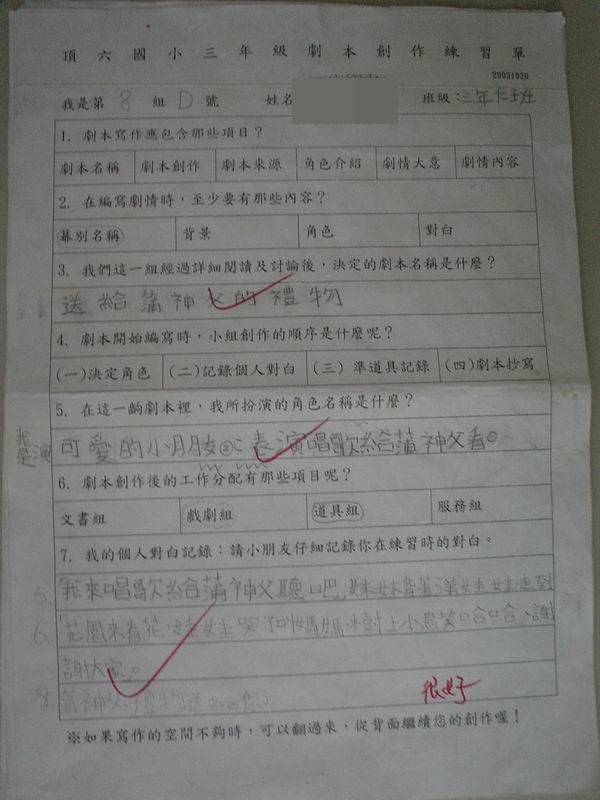 頂六國小三年級劇本創作練習單
20031020
我是第8組D號 姓名 班級：三年仁班
1. 劇本寫作應包含那些項目？
劇本名稱 劇本創作 劇本來源 角色介紹 劇情大意 劇情內容
2. 在編寫劇情時，至少要有那些內容？
幕別名稱 背景 角色 對白
3. 我們這一組經過詳細閱讀及討論後，決定的劇本名稱是什麼？
送給蒲神父的禮物
4. 劇本開始編寫時，小組創作的順序是什麼呢？
(一)決定角色 (二)記錄個人對白 (三) 準道具記錄 (四)劇本抄寫
5. 在這一齣劇本裡，我所扮演的角色名稱是什麼？
我是演 可愛的小朋友②：表演唱歌給蒲神父看。
6. 劇本創作後的工作分配有那些項目呢？
文書組 戲劇組 道具組 服務組
7. 我的個人對白記錄：請小朋友仔細記錄你在練習時的對白。
5. 我來唱歌給蒲神父聽吧，妹妹背著洋娃娃走到
6. 花園來看花，娃娃哭了叫媽媽，樹上小鳥笑哈哈、謝
謝大家。
8. 蒲神父，禮物送給你，
很好
※如果寫作的空間不夠時，可以翻過來，從背面繼續您的創作喔！